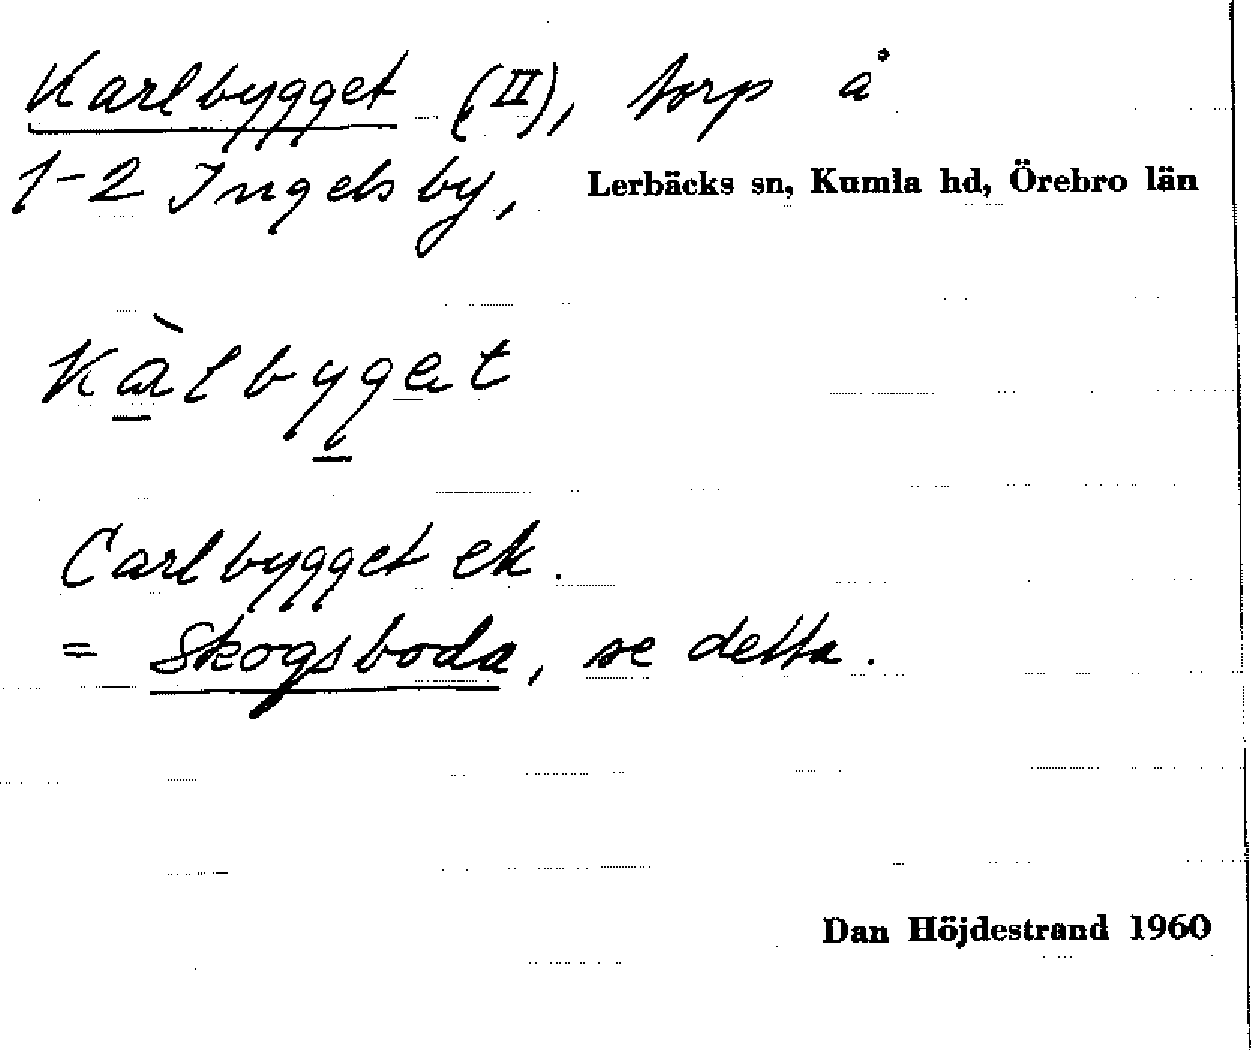 Karlbygget (II), torp å
1-2 Ingelsby, Lerbäcks sn, Kumla hd, Örebro län
Kàlbyget
Carlbygget ek.
= Skogsboda, se detta.
Dan Höjdestrand 1960